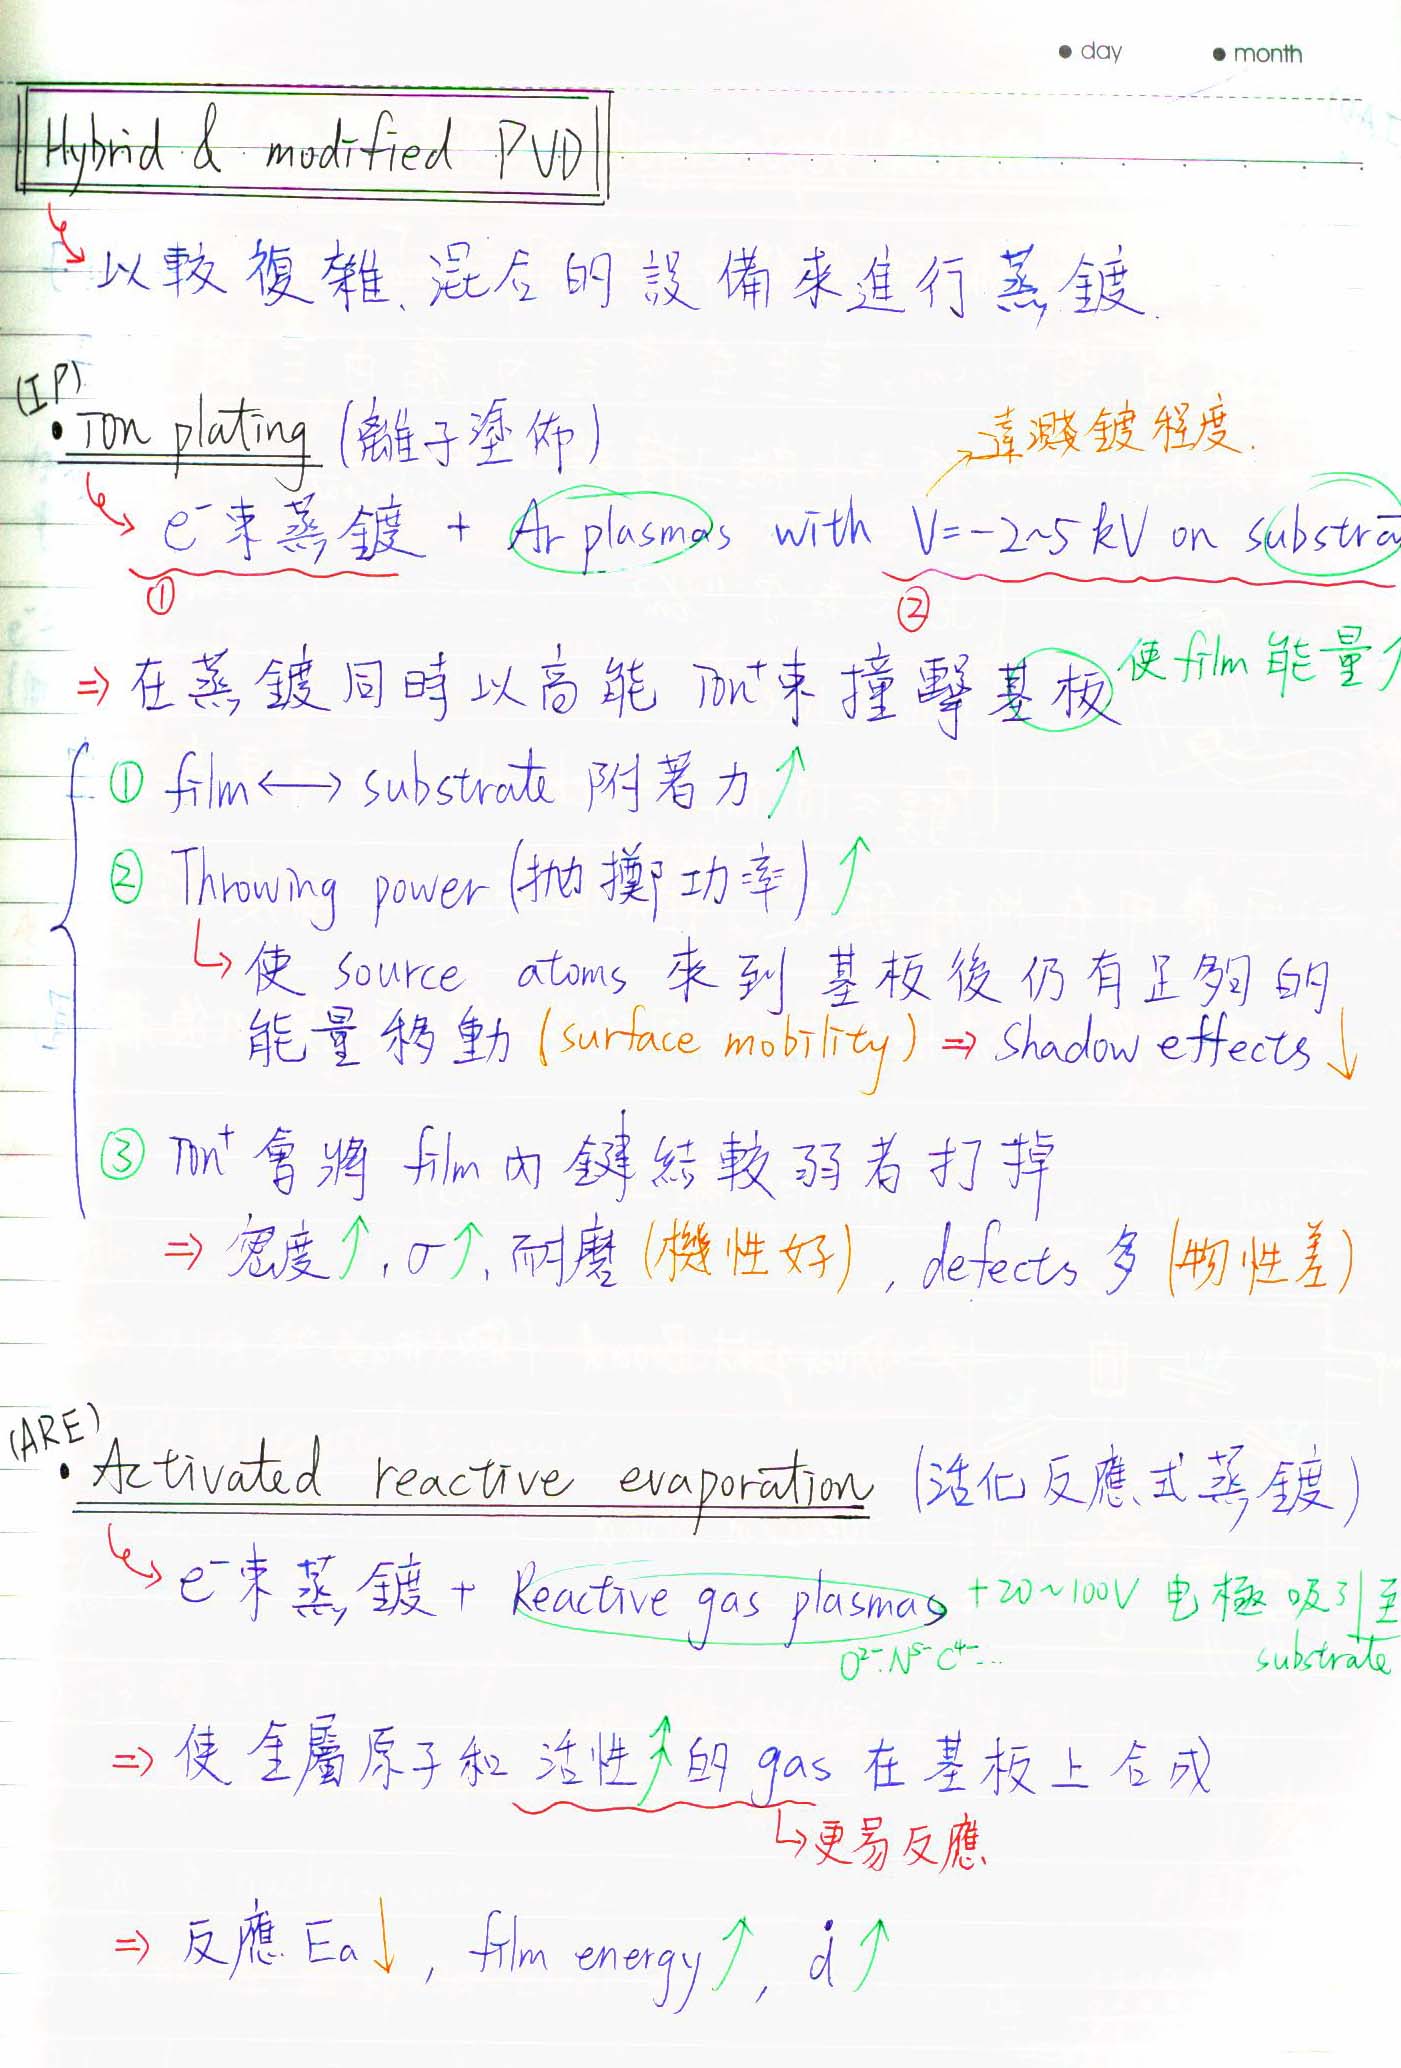 day month
Hybrid & modified PVD
以較複雜、混合的設備來進行蒸鍍.
(IP)
• Ion plating (離子塗佈)
達濺鍍程度.
e⁻束蒸鍍 + Ar plasmas with V=-2~5 kV on substra
① ②
⇒ 在蒸鍍同時以高能 Ion⁺束撞擊基板 使film能量↑
① film ↔ substrate 附著力↑
② Throwing power (拋擲功率)↑
使 source atoms 來到基板後仍有足夠的
能量移動 (surface mobility) ⇒ shadow effects↓
③ Ion⁺ 會將 film 內鍵結較弱者打掉
⇒ 密度↑, σ↑, 耐磨 (機性好), defects 多 (物性差)
(ARE)
• Activated reactive evaporation (活化反應式蒸鍍)
e⁻束蒸鍍 + Reactive gas plasmas +20~100V 电極吸引至
O²⁻.N⁵⁻C⁴⁻... substrate
⇒ 使金屬原子和活性↑的 gas 在基板上合成
更易反應
⇒ 反應 Ea↓, film energy↑, ḋ↑